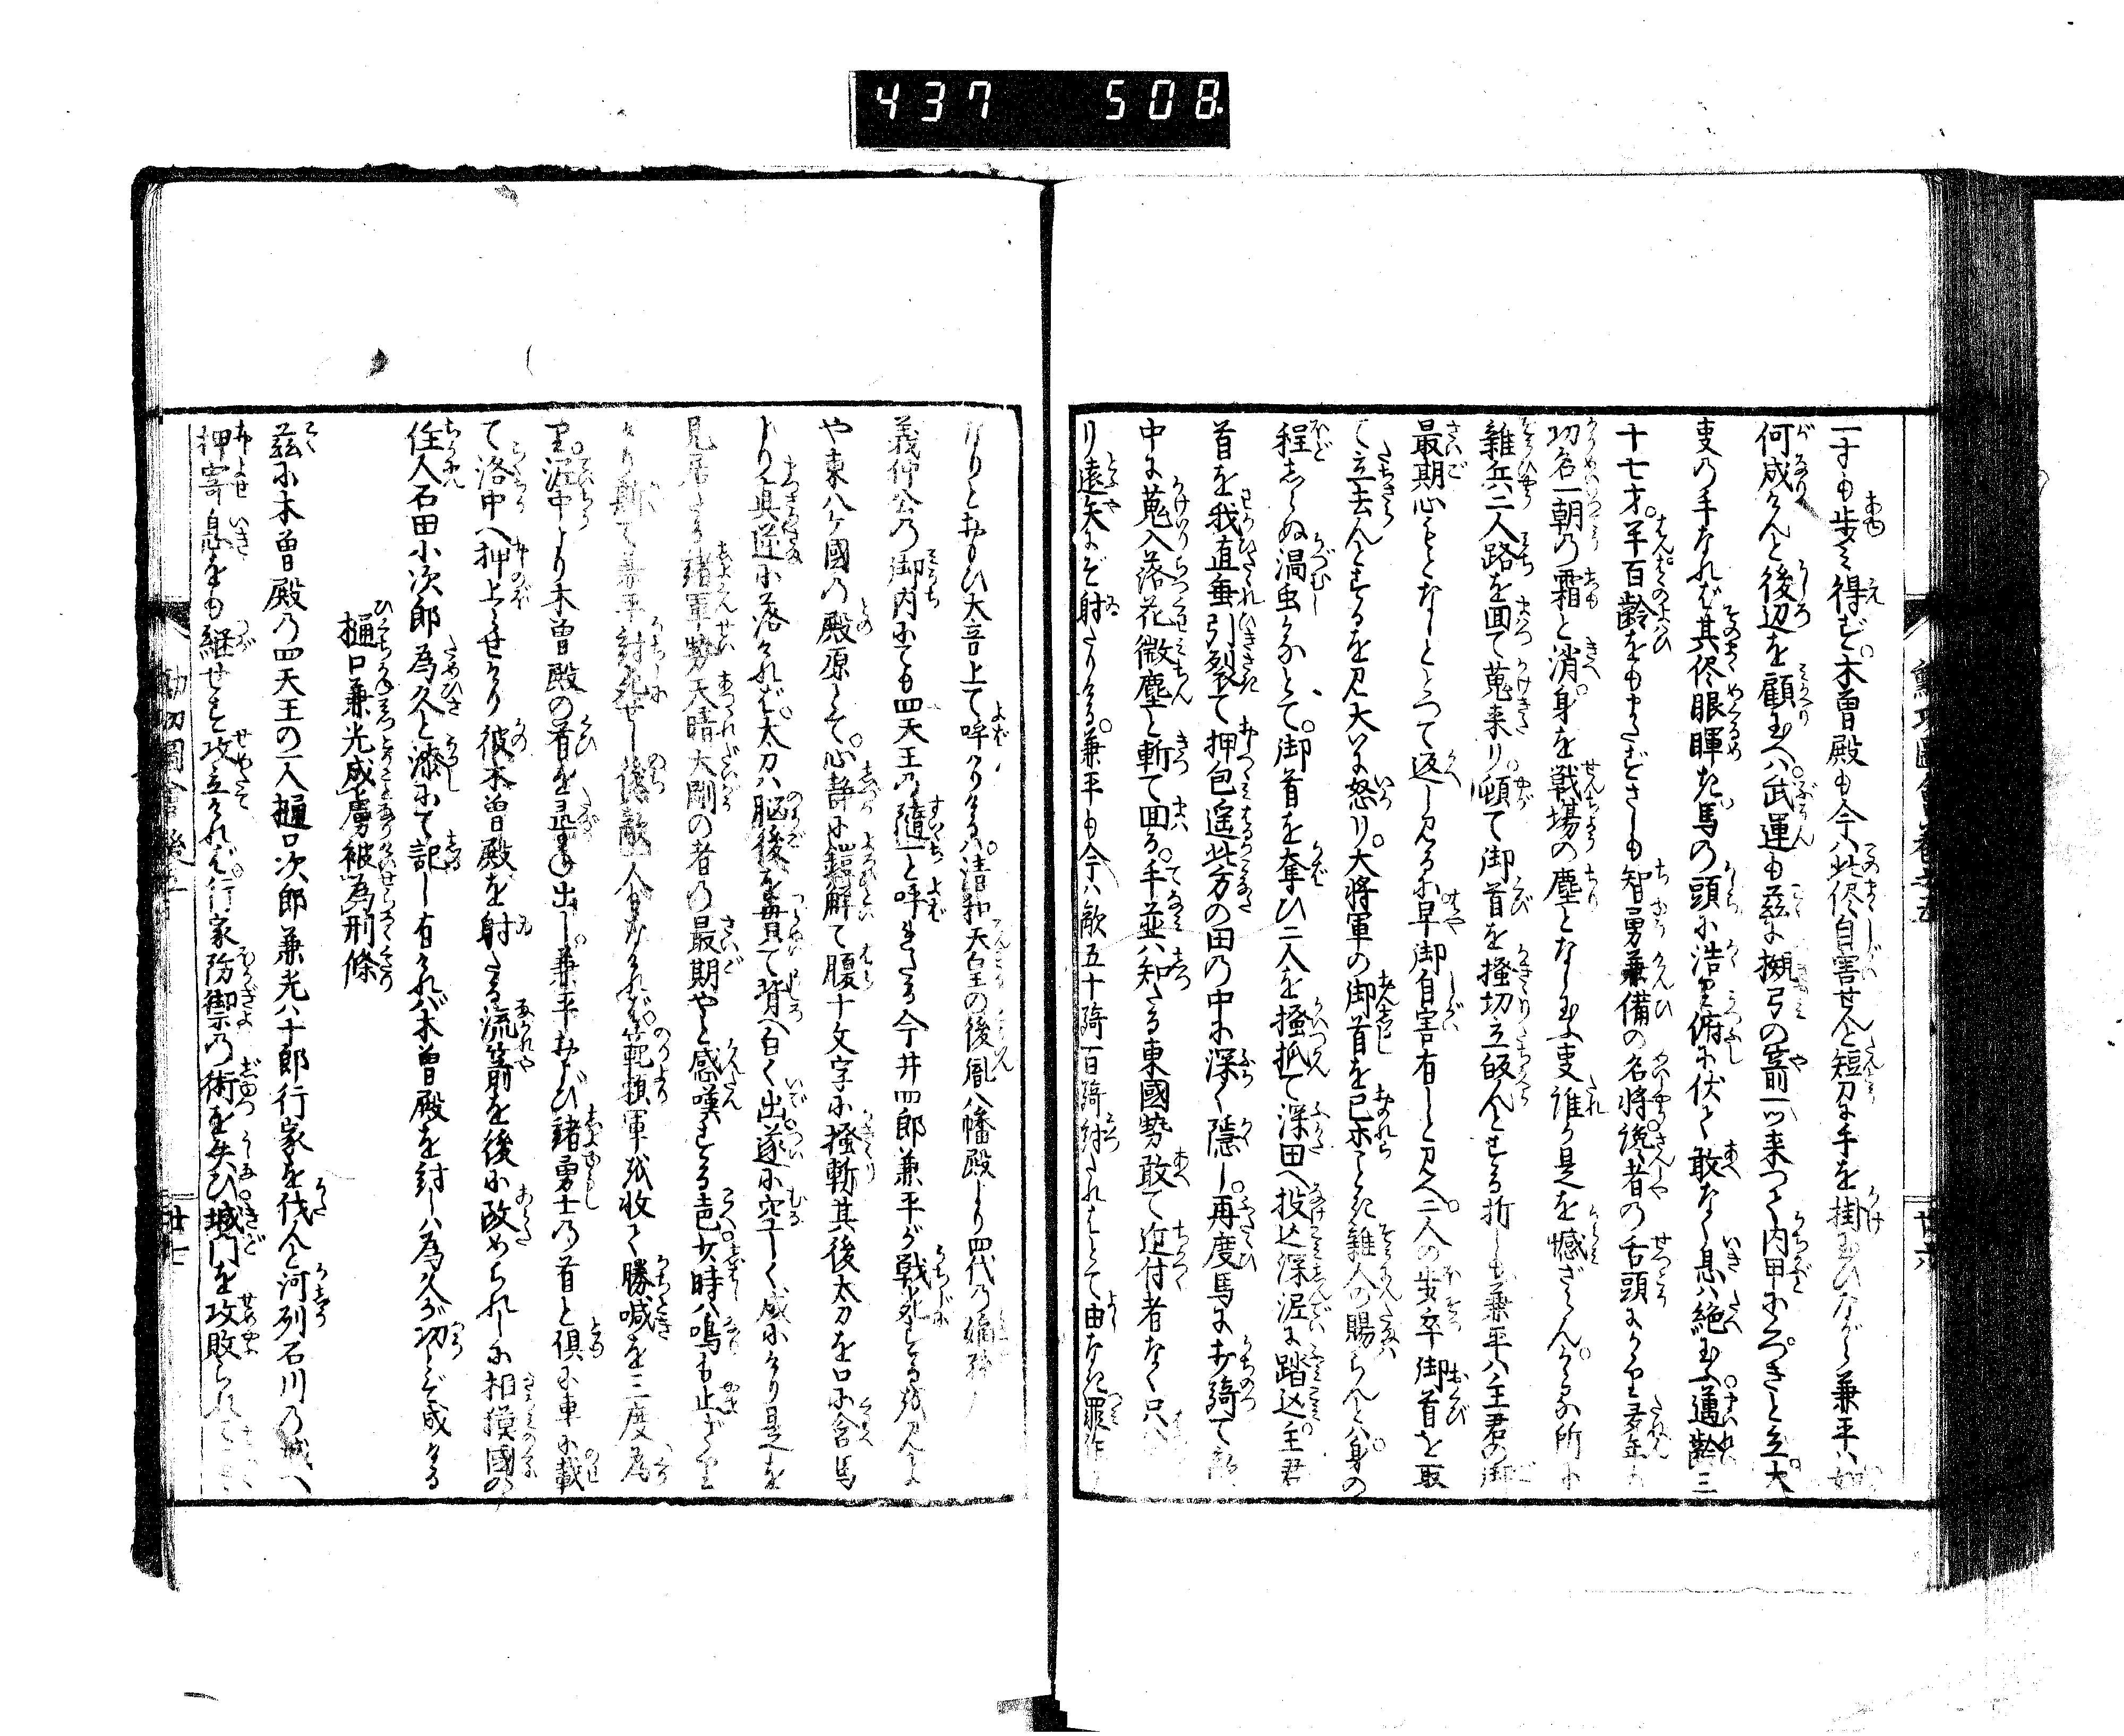 437 508.
一寸も歩ミ得ず。木曽殿も今ハ此侭自害せんと短刀に手を掛給ひながら兼平ハ如
何成けんと後辺を顧給ハ。武運も茲に搠弓の箭一ツ来つて内甲につきと立。大
事の手なれば其侭眼暉き馬の頭に浩と俯に伏て敢なく息ハ絶給ふ。邁齢三
十七才。半百齢をもまたずさしも智勇兼備の名将讒者の舌頭に
功名一朝の霜と消。身を戦場の塵となし給ふ事誰か是を憾ざらん。かゝる所に
雑兵二人路を回て蒐来り。頓て御首を掻切立皈んとする折しも兼平ハ主君の御
最期心もとなしととつて返し見るに早御自害有しと見へ。二人の歩卒御首を取
て立去んとするを見大いに怒り。大将軍の御首を己ホごとき雑人の賜らんハ。身の
程しらぬ渦虫かなとて。御首を奪ひ二人を掻抓て深田へ投込深泥に踏込。主君
首を我直垂引裂て押包遥此方の田の中に深く隠し。再度馬に打騎て
中に蒐入落花微塵と斬て回る。手並ハ知たる東國勢敢て近付者なく只
り遠矢にぞ射たりける。兼平も今ハ敵五十騎一百騎討たればとて由なき罪作
なりとおもひ大音上て呼ハりける。清和天皇の後胤八幡殿より四代の嫡孫
義仲公の御内にても四天王の随一と呼れたる今井四郎兼平が戦死する様見よ
や東八ヶ國の殿原とて。心静に鎧解て腹十文字に掻斬其後太刀を口に含馬
より真逆に落ければ。太刀ハ脳後を貫て背へ白く出。遂に空しく成にけり是を
見居たる諸軍勢天晴大剛の者の最期やと感嘆する声少時ハ鳴も止ざりけ
り斯て兼平討死せし後敵一人もなければ。範頼軍を收て勝喊を三度為
り。泥中より木曽殿の首を尋出し。兼平および諸勇士の首と倶に車に載
て洛中へ押上らせけり彼木曽殿を射たる流箭を後に改められしに相摸國の
住人石田小次郎為久と漆にて記し有ければ木曽殿を討しハ為久が功とぞ成ける
樋口兼光成虜被為刑條
茲に木曽殿の四天王の一人樋口次郎兼光ハ十郎行家を伐んと河刕石川の城へ
押寄息をも継せず攻立ければ。行家防禦の術を失ひ城門を攻敗られて
廿六
廿七